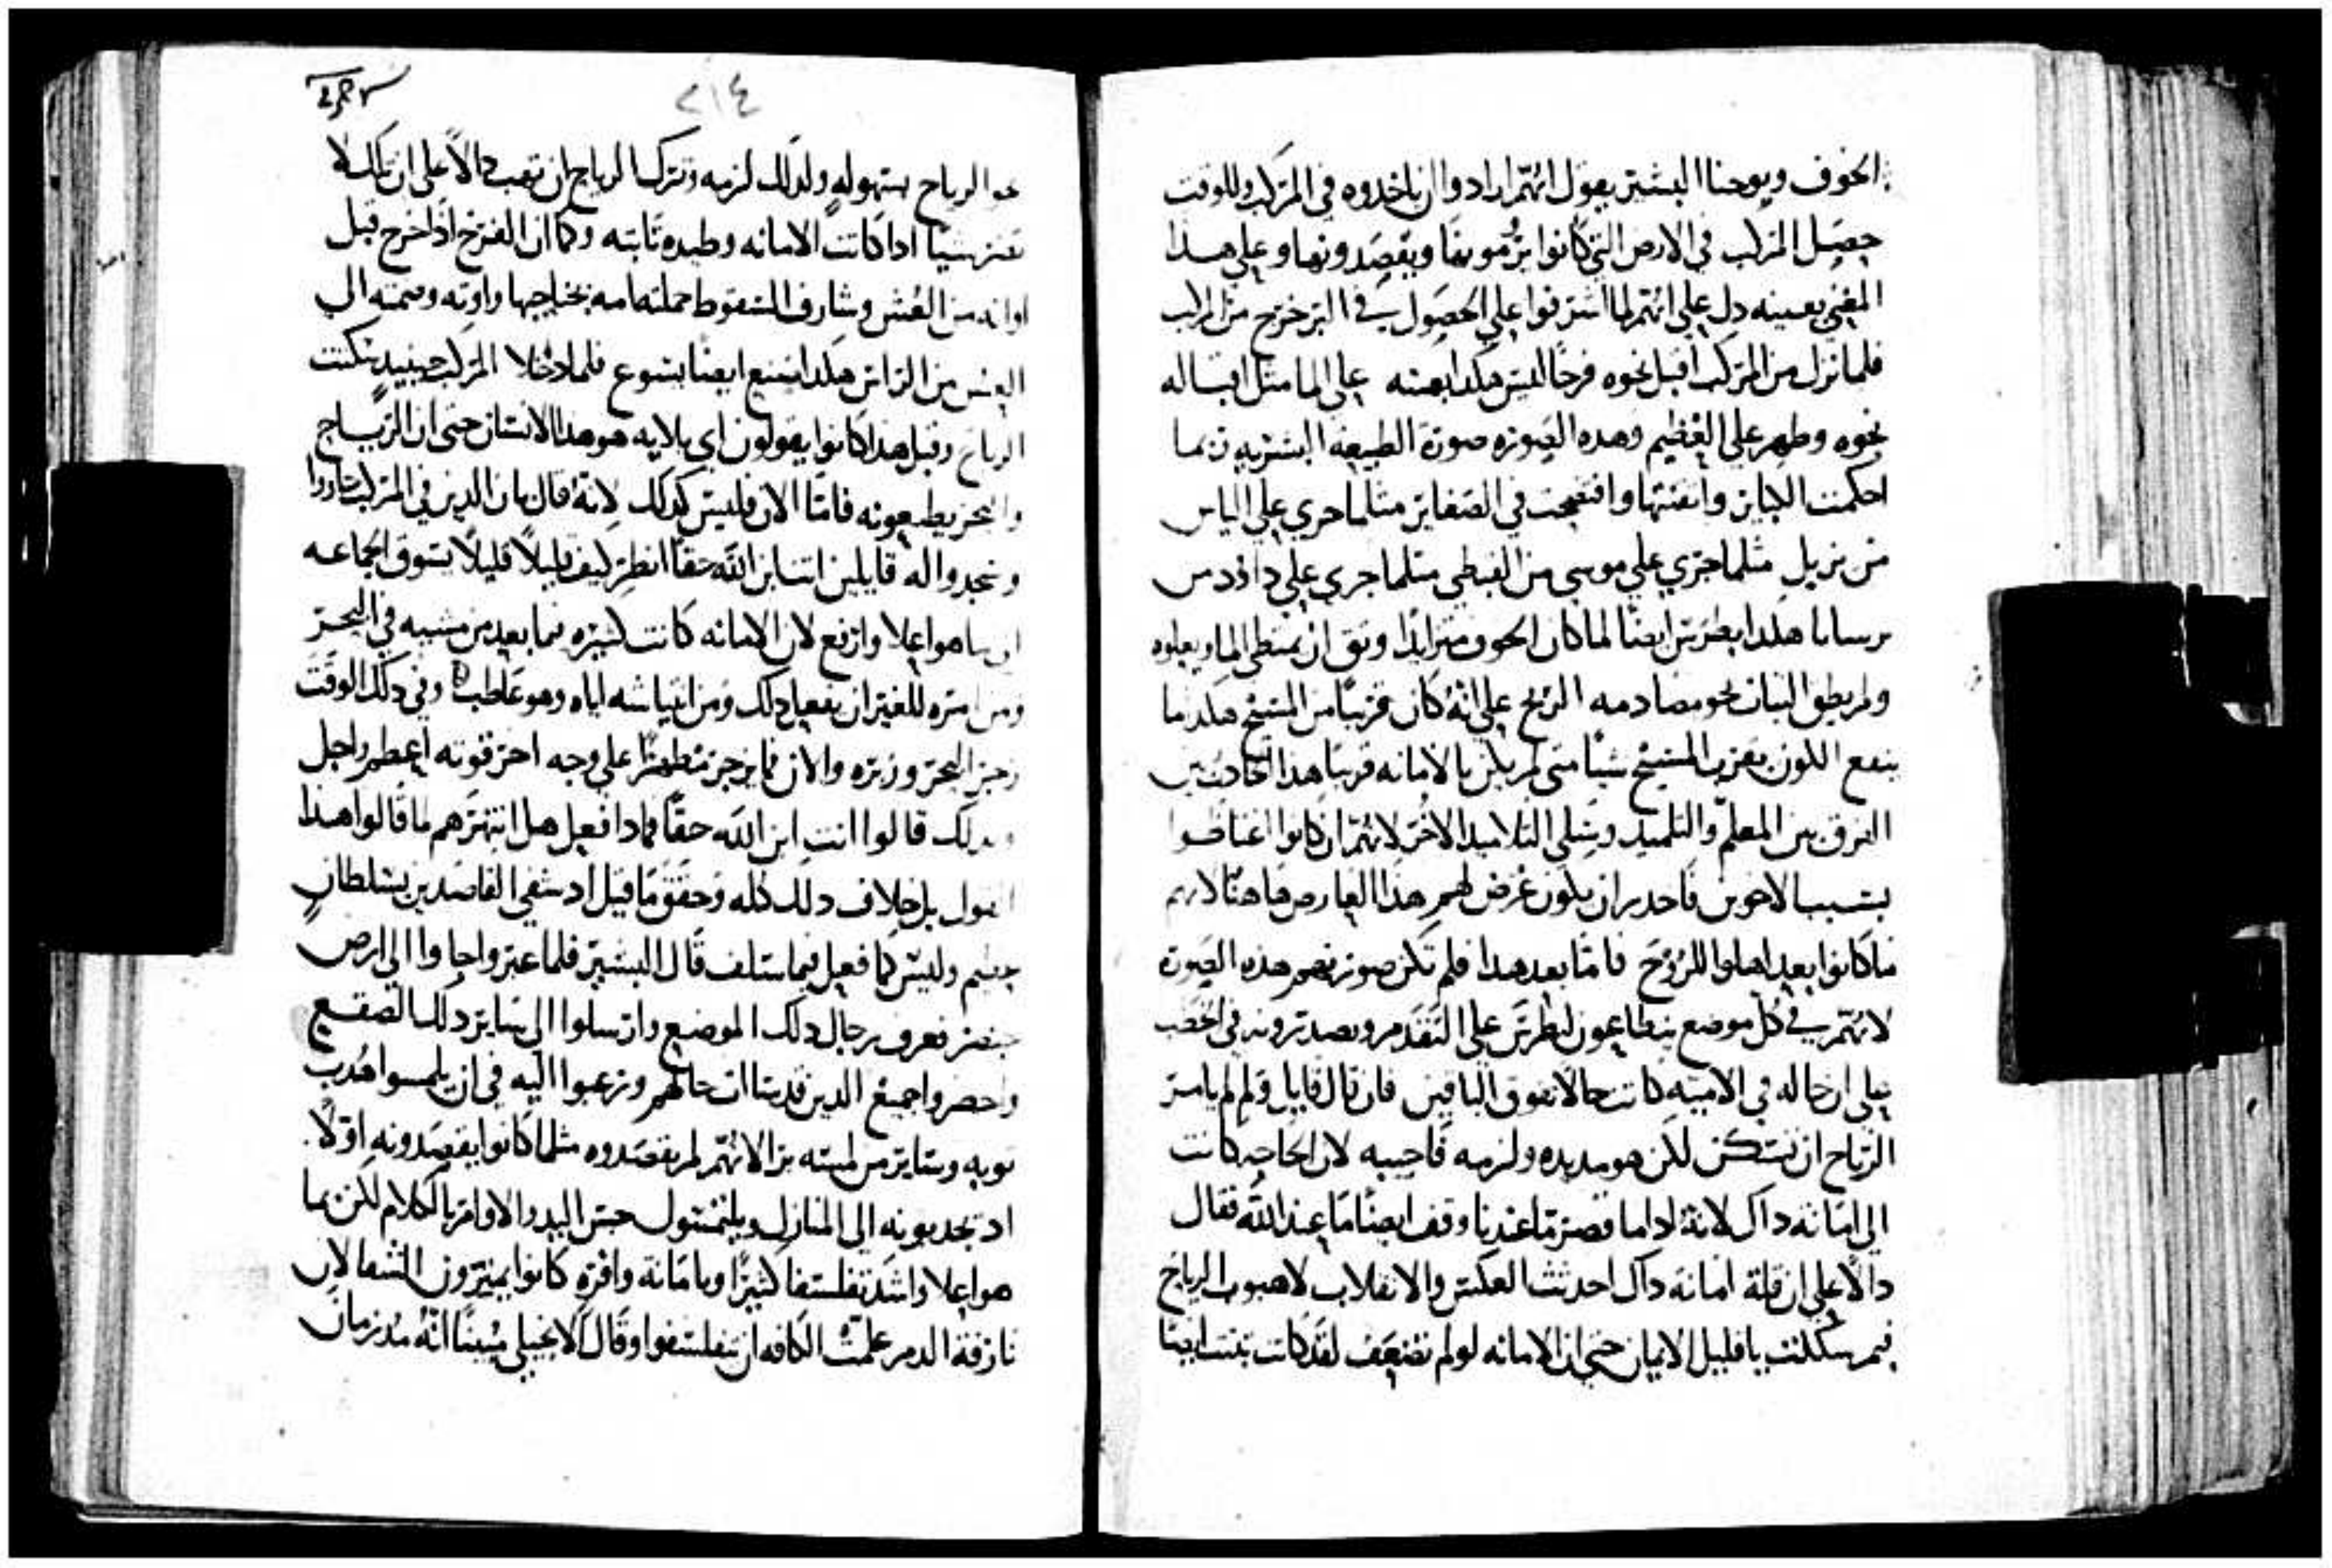 الخوف ويوحنا البشير يقول انهم ارادوا ان ياخدوه في المركب وللوقت
حصل المركب في الارض التي كانوا يرومونها ويقصدونها وعلي هدا
المعني بعينه دل علي انهم لما اشرفوا علي الحصول في البر خرج من المركب
فلما نزل من المركب اقبل نحوه فرحًا ليس هكدا بمشيه علي الما مثل اقباله
نحوه وظهر علي العظيم وهده الصوره صورة الطبيعه البشريه ربما
احكمت الكباير واتقنتها وافتضحت في الصغاير مثلما جري علي الياس
من يزبل مثلما جري علي موسي من القبطي مثلما جري علي داوود من
برسابا هكدا بطرس ايضًا لما كان الخوف متزايدًا وثق ان يمتطي الما ويعلوه
ولم يطق الثبات نحو مصادمه الريح علي انه كان قريبًا من المسيح هكدا ما
ينفع الكون بقرب المسيح شيًا متي لم يكن بالامانه قريبًا هدا الحادث بين
الفرق بين المعلم والتلميد وسلي التلاميد الاخر لانهم ان كانوا اغتاظوا
بسبب الاخوين فاجدر ان يكون عرض لهم هذا العارض هاهنا لانهم
ما كانوا بعد اهلوا للروح فاما بعد هدا فلم تكن صورتهم هده الصوره
لانهم في كل موضع يتطاعون لبطرس علي التقدم ويصدرونه في الخطب
علي ان حاله في الاميه كانت حالا تفوق الباقين فان قال قايل ولم لم يامر
الرياح ان تسكن لكن هو مد يده ولزمه فاجيبه لان الحاجه كانت
الي امانه داك لانه ادا ما قصر ما عندنا وقف ايضًا ما عند الله فقال
دالًا علي ان قلة امانة داك احدثت العكس والانقلاب لا هبوب الرياح
فيم شككت يا قليل الايمان حتي ان الامانه لو لم تضعف لقد كانت ثبتت ايضا
٢١٤
نحو الرياح بسهوله ولدلك لزمه وترك الرياح ان تهب دالًا علي ان تلك لا
تضر شيًا ادا كانت الامانه وطيده ثابته وكما ان الفرخ اذا خرج قبل
اوانه من العش وشارف السقوط حملته امه بجناحيها واوته وضمته الي
العش من الراس هكدا صنع ايضًا يسوع فلما دخلا المركب حينيد سكنت
الرياح وقبل هدا كانوا يقولون اي بلايه هو هدا الانسان حتي ان الرياح
والبحر يطيعونه فاما الان فليس كدلك لانه قال بان الدين في المركب بادروا
وسجدوا له قايلين انت ابن الله حقًا انظر كيف قليلًا قليلًا يسوق الجماعه
الي ما هو اعلا وارفع لان الامانه كانت كثيره مما بعد من مشيه في البحر
ومن امره للغير ان يفعل دلك ومن انتياشه اياه وهو عاطب وفي دلك الوقت
زجر البحر وزبره والان فما يزجر مظهرًا علي وجه اخر قوته اعظم واجل
ولدلك قالوا انت ابن الله حقًا فمادا فعل هل انتهرهم لما قالوا هدا
القول بل خلاف دلك كله وحقق ما قيل اد شفي القاصدين بسلطان
عظيم وليس كما فعل فيما سلف قال البشير فلما عبروا جاوا الي ارض
جنصر فعرف رجال دلك الموضع وارسلوا الي ساير دلك الصقع
واحضروا جميع الدين قد ساات حالهم ورغبوا اليه في ان يلمسوا هدب
ثوبه وساير من لمسه برا لانهم لم يقصدوه مثلما كانوا يقصدونه اولًا
اد يجدبونه الي المنازل ويلتمسون حس اليد والاوامر بالكلام لكن بما
هو اعلا واشد تفلسفا كثيرًا وبامانة وافره كانوا يميزون الشفا لان
نازفة الدم علمت الكافه ان يتفلسفوا وقال الانجيلي مبينًا انه مد زمان